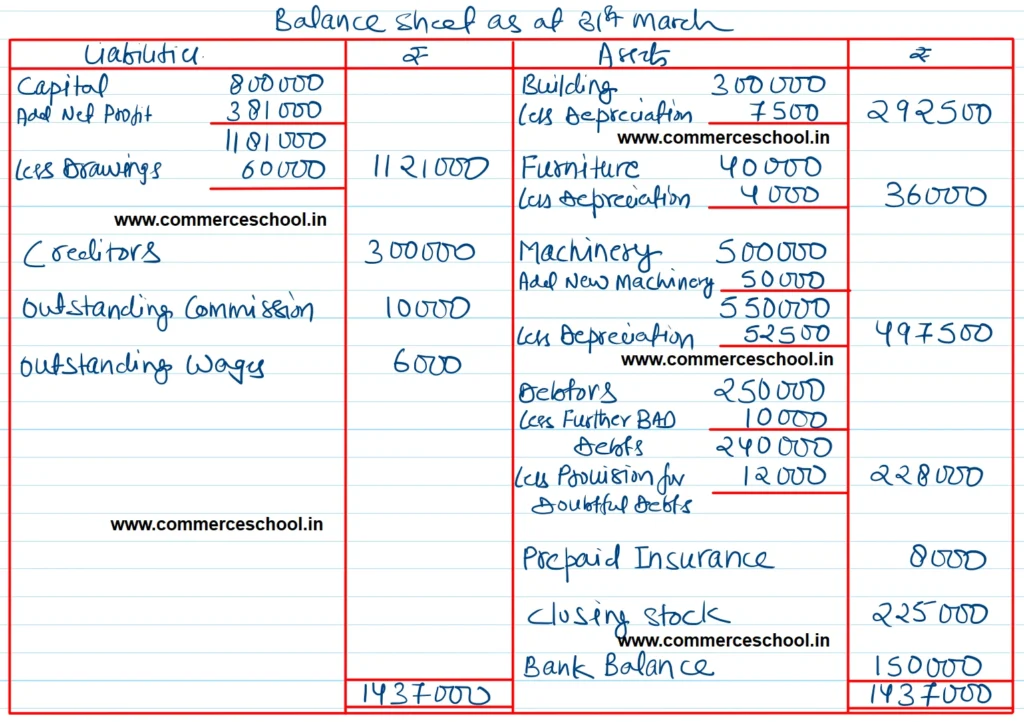 Balance sheet as at 31st March
Liabilities ₹ Assets ₹
Capital 800000 Building 300000
Add Net Profit 381000 Less Depreciation 7500 292500
1181000 www.commerceschool.in
Less Drawings 60000 1121000 Furniture 40000
Less Depreciation 4000 36000
www.commerceschool.in
Creditors 300000 Machinery 500000
Add New Machinery 50000
Outstanding Commission 10000 550000
Less Depreciation 52500 497500
Outstanding Wages 6000 www.commerceschool.in
Debtors 250000
Less Further BAD 10000
Debts 240000
Less Provision for 12000 228000
Doubtful Debts
www.commerceschool.in
Prepaid Insurance 8000
Closing stock 225000
www.commerceschool.in
Bank Balance 150000
1437000 1437000